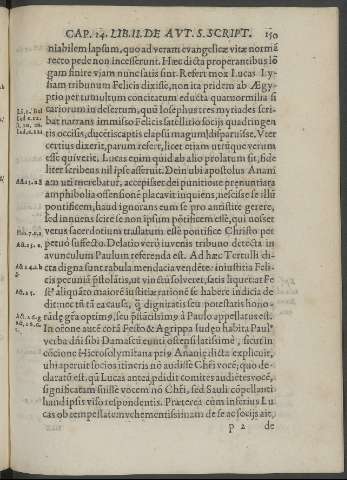 CAP. 24. LIB. II. DE AVT. S. SCRIPT. 150
niabilem lapsum, quo ad veram evangelicæ vitæ normā
recto pede non incesserunt. Hæc dicta properantibus lō
gam finire viam nunc satis sint. Refert mox Lucas Ly-
siam tribunum Felicis dixisse, non ita pridem ab Ægy-
ptio per tumultum concitatum educta quatuor millia si
cariorum in desertum, quū Iosephus tres myriades scri
bat narrans immisso Felicis satellitio socijs quadringen
tis occisis, ducētis captis elapsū magum disparuisse. Vter
certius dixerit, parum refert, licet etiam utrūque verum
esse quiverit. Lucas enim quid ab alio prolatum sit, fide
liter scribens nil ipse asseruit. Dein ubi apostolus Anani
am uti increbatur, accepisset dei punitione prenuntiata
amphibolia ostensione placavit iniquiens, nescisse se illū
pontificem, haud ignorans eum se pro antistite gerere,
sed innuens scire se non ipsum pōtificem esse, qui nosset
vetus sacerdotium traslatum esse pontifice Christo per
petuō suffecto. Delatio verō iuvenis tribuno detecta in
avunculum Paulum referenda est. Ad hæc Tertulli di-
cta digna sunt rabula mendacia vendēte: iniustitia Feli-
cis pecuniā p̄stolātis, ut vinctū solveret, satis liquet: at Fe
st᾽ aliquāto maiorē iustitiæ rationē se habere indicia de
dit: nec tn̄ tā ea causæ, q̄ dignitatis seu potestatis hono-
rādę gr̄a optim, seu p̄stātissim, à Paulo appellatus est.
In or̄one autē corā Festo & Agrippa Iudęo habita Paul᾽
verba dn̄i sibi Damascū eunti ostensi latissimē, sicut in
cōcione Hierosolymitana prię Ananię dicta explicuit,
ubi aperuit socios itineris nō audisse Chr̄i vocē, quo de-
claratū est, qū Lucas antea p̄didit comites audiētes vocē,
significatam fuisse vocem nō Chr̄i, sed Sauli cōpellanti
haud ipsis viso respondentis. Præterea cùm inferius Lu
cas ob tempestatem vehementissimam de se ac socijs ait,
p 2 de